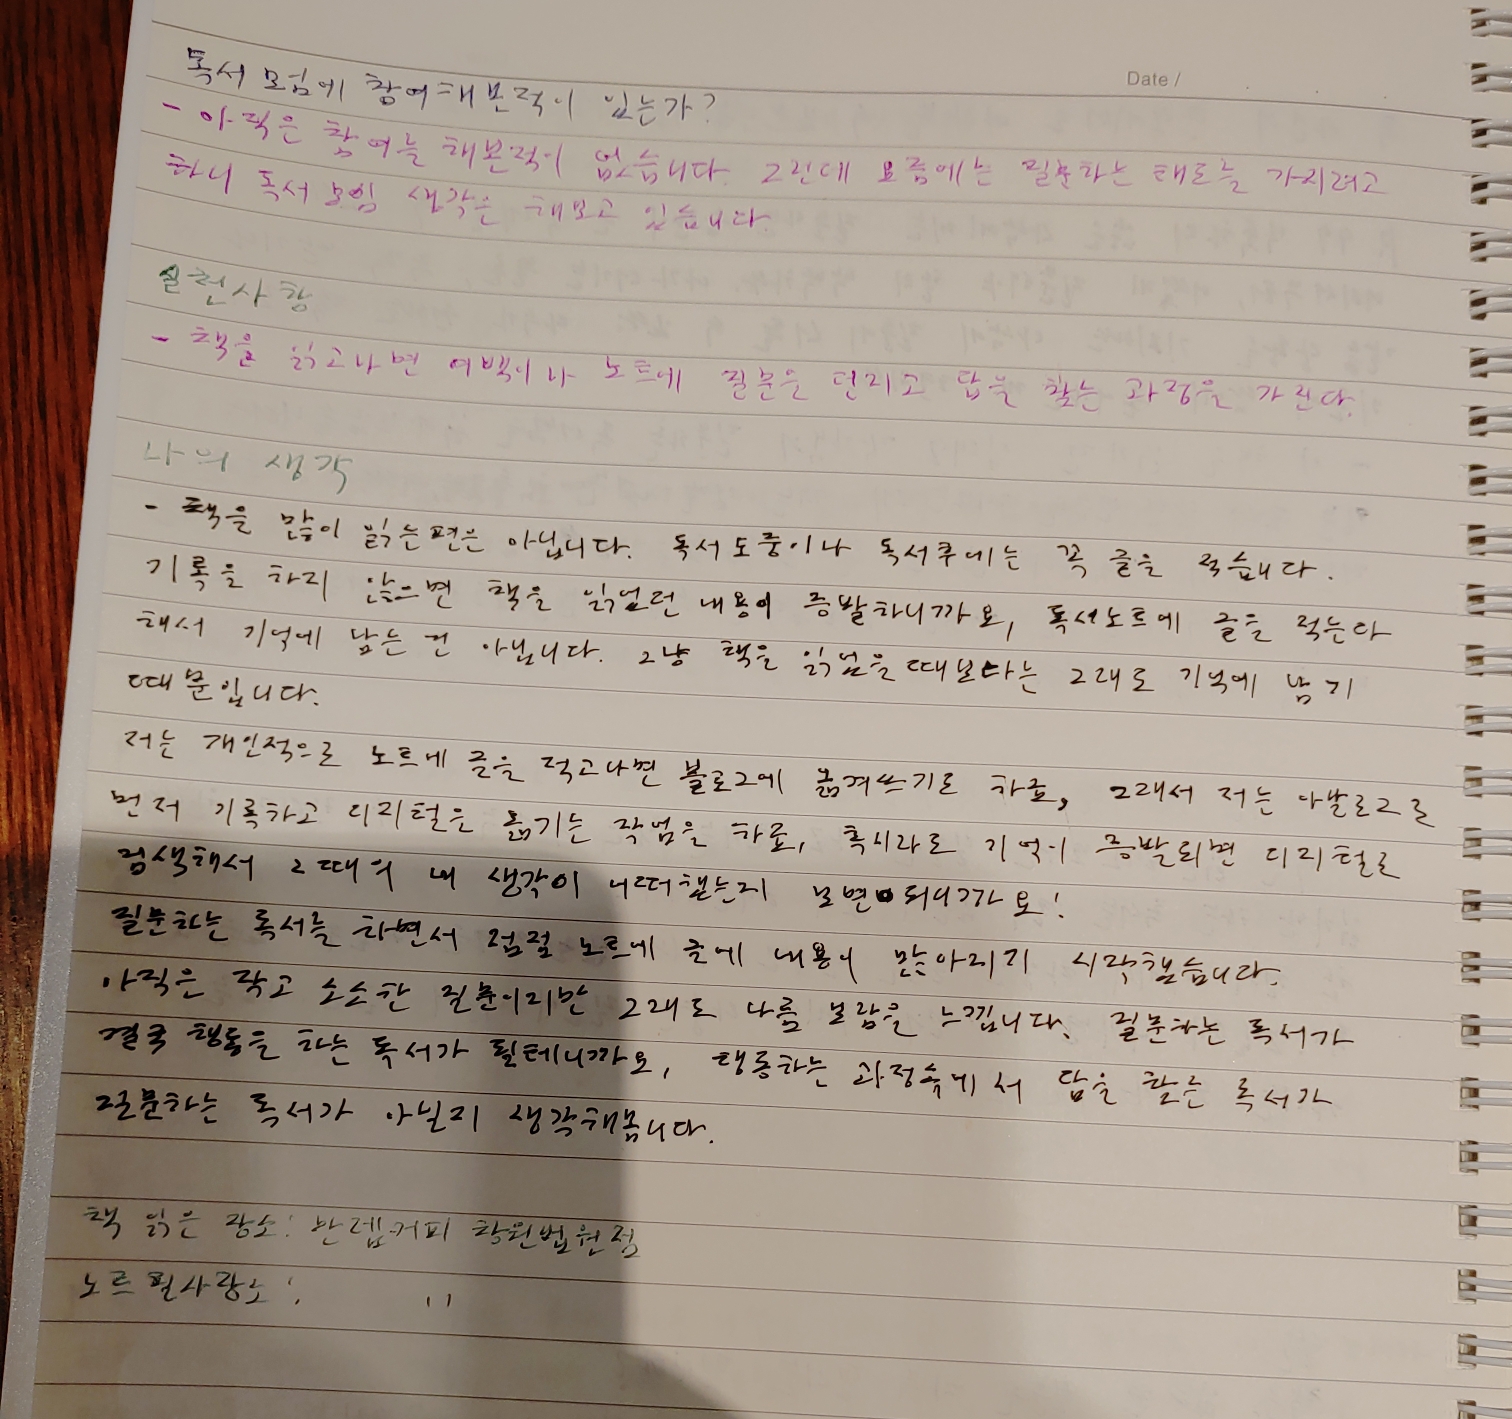 Date /
독서 모임에 참여해본적이 있는가?
- 아직은 참여를 해본적이 없습니다. 그런데 요즘에는 질문하는 태도를 가지려고
하니 독서 모임 생각은 해보고 있습니다.
실천사항
- 책을 읽고나면 여백이나 노트에 질문을 던지고 답을 찾는 과정을 가진다.
나의 생각
- 책을 많이 읽는편은 아닙니다. 독서도중이나 독서후에는 꼭 글을 적습니다.
기록을 하지 않으면 책을 읽었던 내용이 증발하니까요, 독서노트에 글을 적는다
해서 기억에 남는 건 아닙니다. 그냥 책을 읽었을때보다는 그래도 기억에 남기
때문입니다.
저는 개인적으로 노트에 글을 적고나면 블로그에 옮겨쓰기도 하죠, 그래서 저는 아날로그로
먼저 기록하고 디지털은 옮기는 작업을 하죠, 혹시라도 기억이 증발되면 디지털로
검색해서 그때의 내 생각이 어떠했는지 보면 되니까요!
질문하는 독서를 하면서 점점 노트에 글에 내용이 많아지기 시작했습니다.
아직은 작고 소소한 질문이지만 그래도 나름 보람을 느낍니다. 질문하는 독서가
결국 행동을 하는 독서가 될테니까요, 행동하는 과정속에서 답을 찾는 독서가
질문하는 독서가 아닐지 생각해봅니다.
책 읽은 장소: 반뎁커피 창원법원점
노트필사장소: 〃